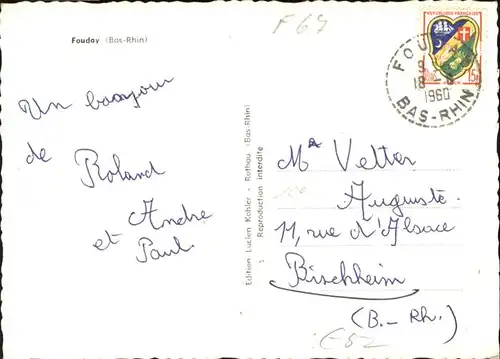 F 69
Fouday (Bas-Rhin)
Un bonjour
de
Roland
Andre
et
Paul.
Edition Lucien Kohler - Rothau (Bas-Rhin)
Reproduction interdite
REPUBLIQUE FRANÇAISE
15F
FOU
18
1960
BAS-RHIN
Mr Velter
Auguste
11, rue d'Alsace
Bischheim
(B.-Rh.)